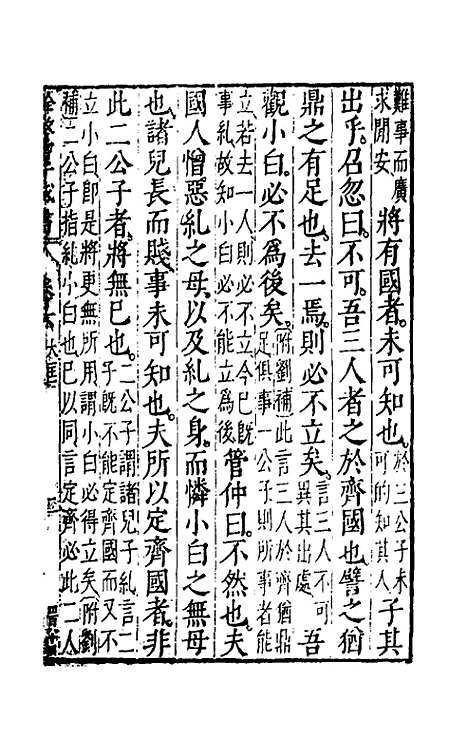 難事而廣求閒安將有國者未可知也於三公子未可的知其人子其
出乎召忽曰不可吾三人者之於齊國也譬之猶
鼎之有足也去一焉則必不立矣言三人不可異其出處吾
觀小白必不爲後矣附劉補此言三人於齊猶鼎足俱事一公子則所事者能
立若去一人則必不立今巳既事糺故知小白必不能立爲後管仲曰不然也夫
國人憎惡糺之母以及糺之身而憐小白之無母
也諸兒長而賤事未可知也夫所以定齊國者非
此二公子者將無巳也二公子謂諸兒子糺言二子既不能定齊國而又不
立小白卽是將更無所用謂小白必得立矣附劉
補二公子指糺小白也巳以同言定齊必此二人